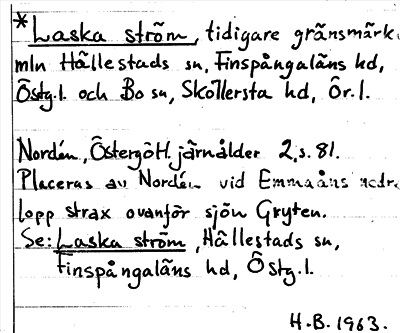 *Laska ström, tidigare gränsmärke
mln Hällestads sn, Finspångaläns hd,
Östg.l. och Bo sn, Skollersta hd, Ör.l.
Nordén, Östergötl. järnålder 2, s. 81.
Placeras av Nordén vid Emmaåns nedre
lopp strax ovanför sjön Gryten.
Se: Laska ström, Hällestads sn,
Finspångaläns hd, Östg.l.
H.B. 1963.